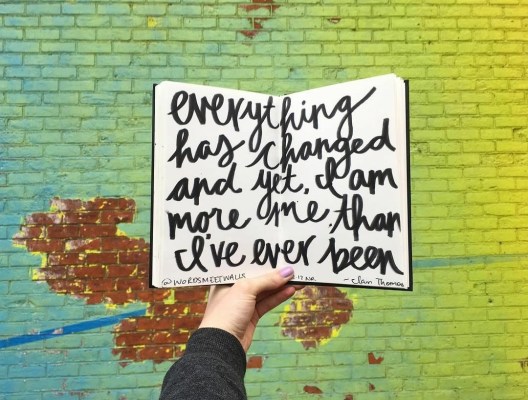 everything
has changed
and yet, I am
more me than
I've ever been
@WORDSMEETWALLS
- Iain Thomas